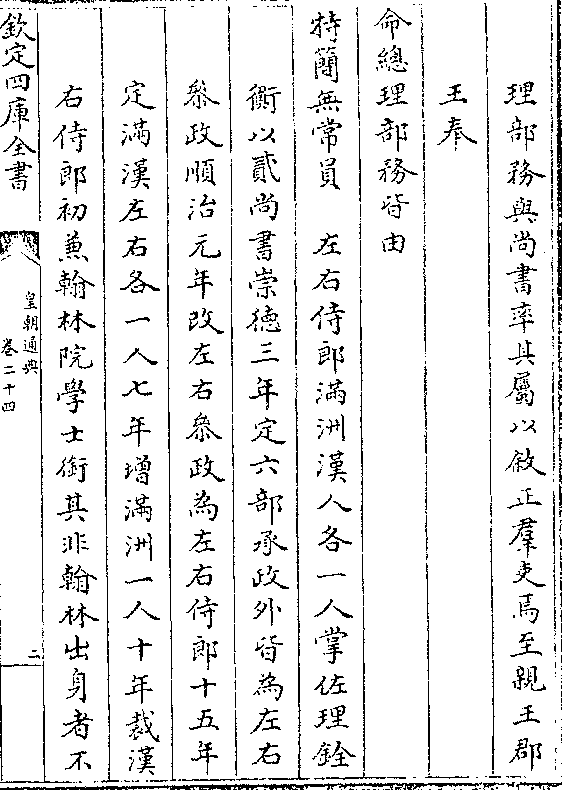 理部務與尚書率其屬以敘正羣吏焉至親王郡
王奉
命總理部務皆由
特簡無常員　左右侍郎滿洲漢人各一人掌佐理銓
衡以貳尚書崇德三年定六部承政外皆為左右
叅政順治元年改左右叅政為左右侍郎十五年
定滿漢左右各一人七年增滿洲一人十年裁漢
右侍郎初兼翰林院學士銜其非翰林出身者不
欽定四庫全書
皇朝通典
卷二十四
二